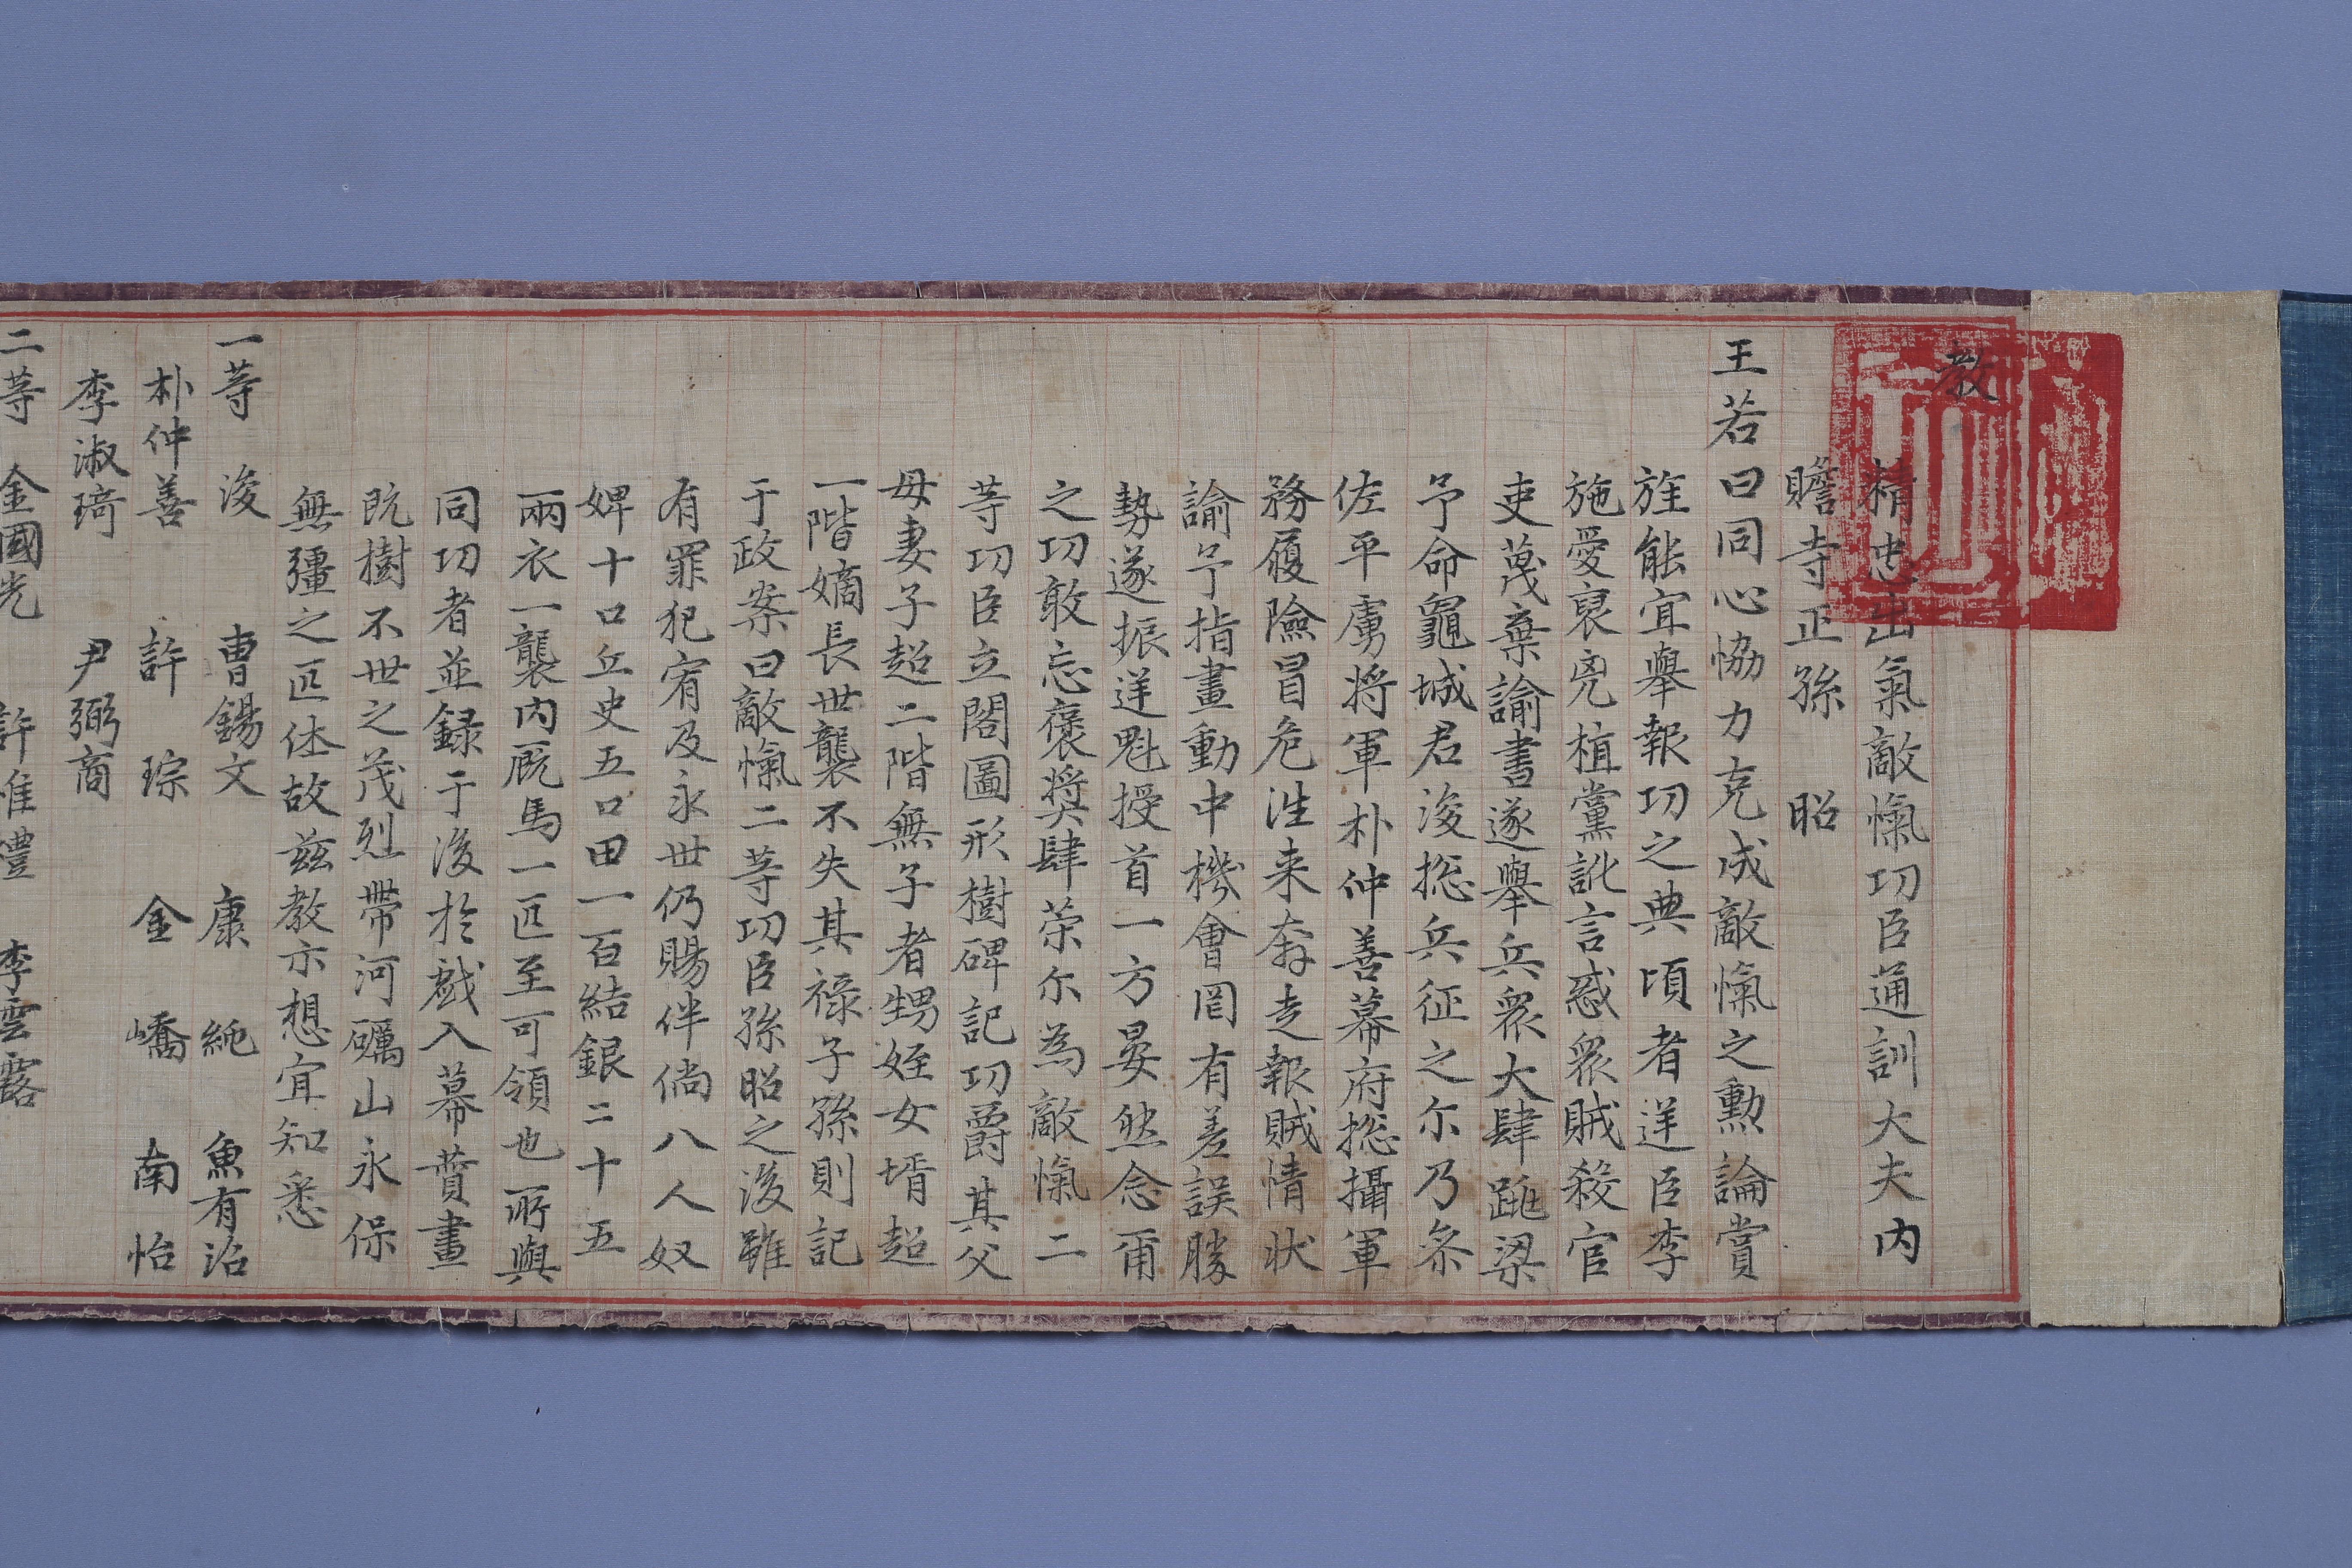 教
精忠出氣敵愾功臣通訓大夫内
贍寺正孫昭
王若曰同心恊力克成敵愾之勳論賞
旌能宜舉報功之典頃者逆臣李
施愛裒兇植黨訛言惑衆賊殺官
吏蔑棄諭書遂舉兵衆大肆跳梁
予命龜城君浚捴兵征之尓乃叅
佐平虜将軍朴仲善幕府捴攝軍
務履險冒危洼来奔走報賊情状
諭予指畫動中機會罔有差誤勝
勢遂振逆魁授首一方晏然念爾
之功敢忘褒奬肆荣尓為敵愾二
等功臣立閣圖形樹碑記功爵其父
母妻子超二階無子者甥姪女壻超
一階嫡長世襲不失其祿子孫則記
于政案曰敵愾二等功臣孫昭之後雖
有罪犯宥及永世仍賜伴倘八人奴
婢十口丘史五口田一百結銀二十五
兩衣一襲内廐馬一匹至可領也所與
同功者並録于後於戱入幕賛畫
既樹不世之茂烈帶河礪山永保
無疆之匹休故玆教示想宜知悉
一等 浚 曹錫文 康純 魚有沼
朴仲善 許琮 金嶠 南怡
李淑琦 尹弼商
二等 金國光 許惟禮 李雲露